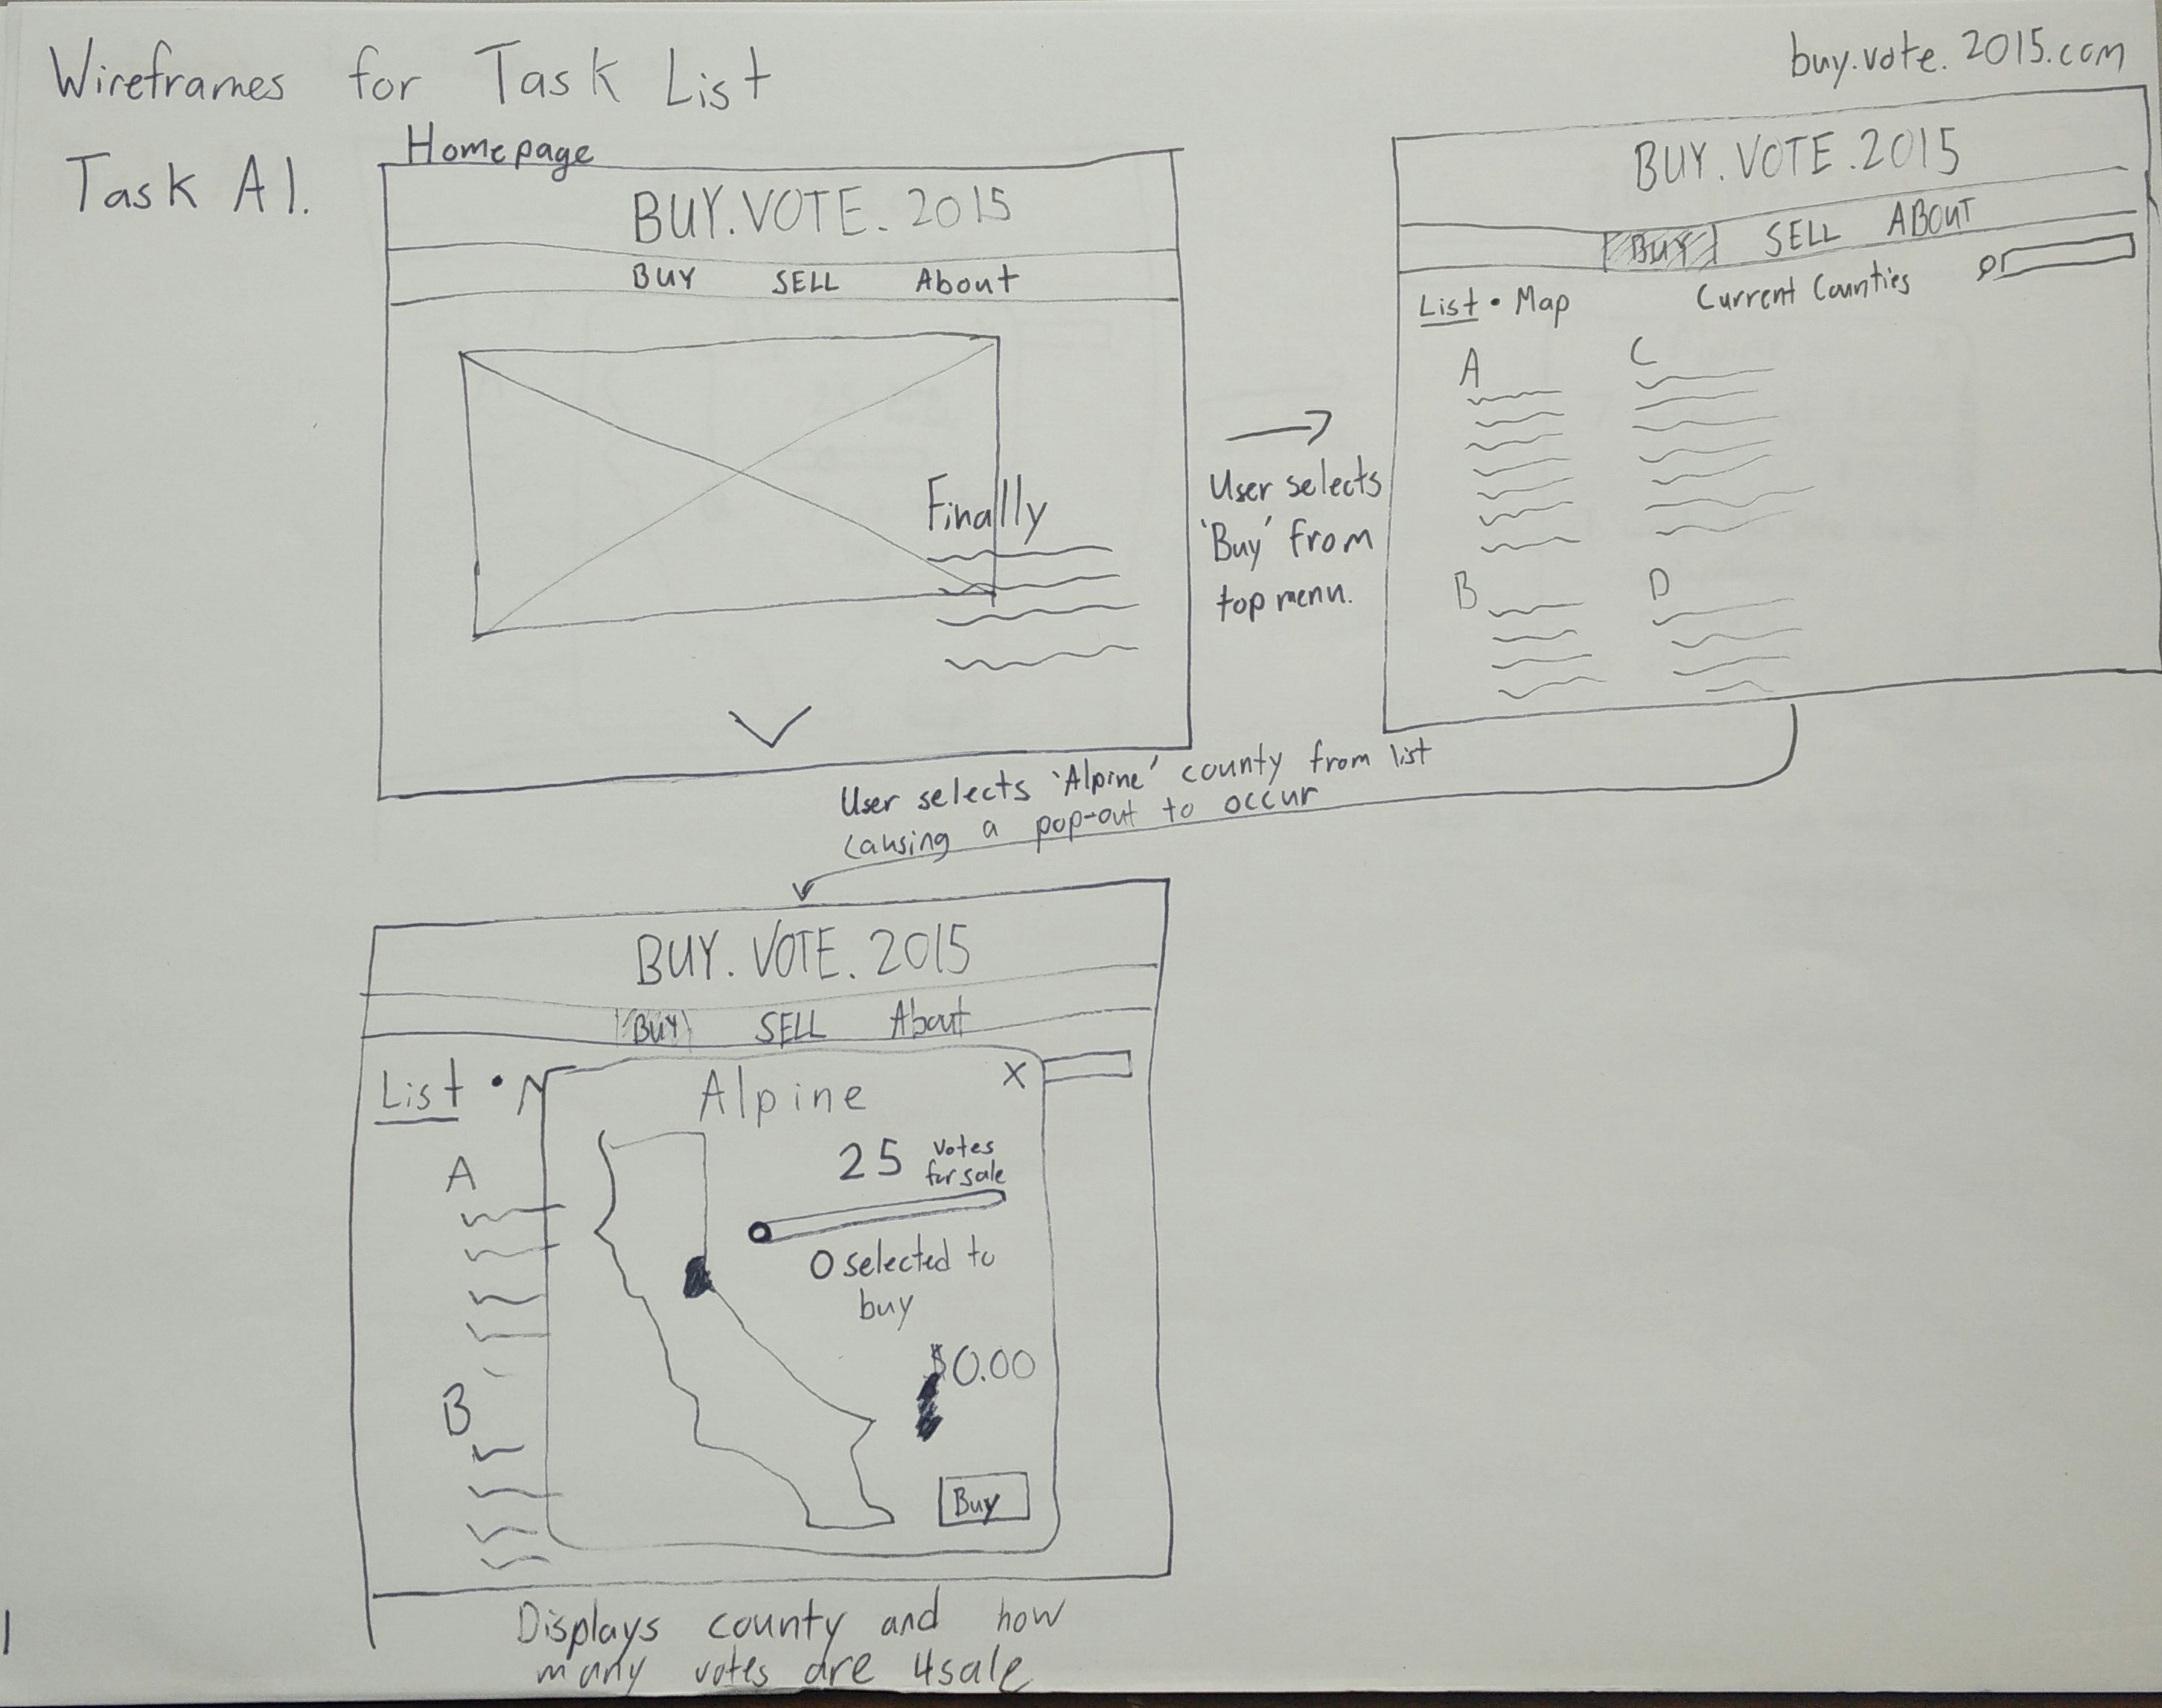 Wireframes for Task List
buy.vote.2015.com
Task A1.
Homepage
BUY.VOTE.2015
BUY SELL About
Finally
User selects
'Buy' from
top menu.
BUY.VOTE.2015
BUY SELL ABOUT
List • Map
Current Counties
A
C
B
D
User selects 'Alpine' county from list
causing a pop-out to occur
BUY.VOTE.2015
BUY SELL About
List • M
Alpine X
A
25 votes
for sale
0 selected to
buy
$0.00
B
Buy
Displays county and how
many votes are 4sale